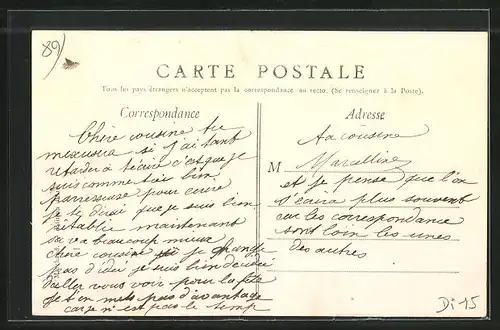 89)
CARTE POSTALE
Tous les pays étrangers n'acceptent pas la correspondance au recto. (Se renseigner à la Poste).
Correspondance
Chère cousine tu
mexusera si j'ai tant
retarder à técrir c'est que je
suis comme tu sais bien
parresseuse pour écrire
je te dirai que je suis bien
rétablie maintenant
sa va beaucoup mieux
chère cousine si je change
pas d'idée je suis bien décidée
d'aller vous voir pour la fête
je t'en mets pas d'avantage
car je n'est pas le temp
Adresse
Ta cousine
M Marcelline
et je pense que l'on
s'écrira plus souvent
car les correspondance
sont loin les unes
des autres
Di 15